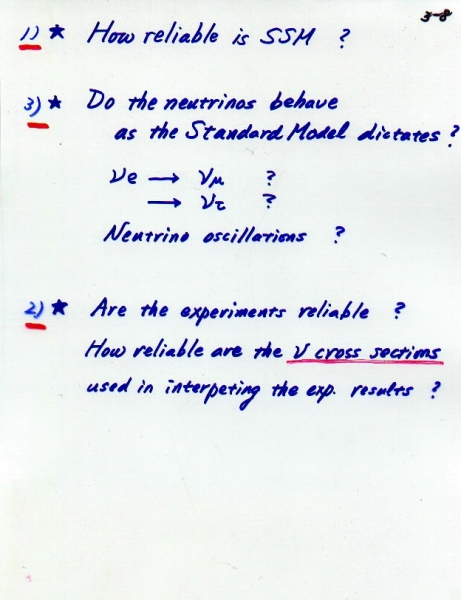 3-8
1) ★ How reliable is SSM ?
3) ★ Do the neutrinos behave
as the Standard Model dictates ?
νe → νμ ?
→ ντ ?
Neutrino oscillations ?
2) ★ Are the experiments reliable ?
How reliable are the ν cross sections
used in interpeting the exp. results ?